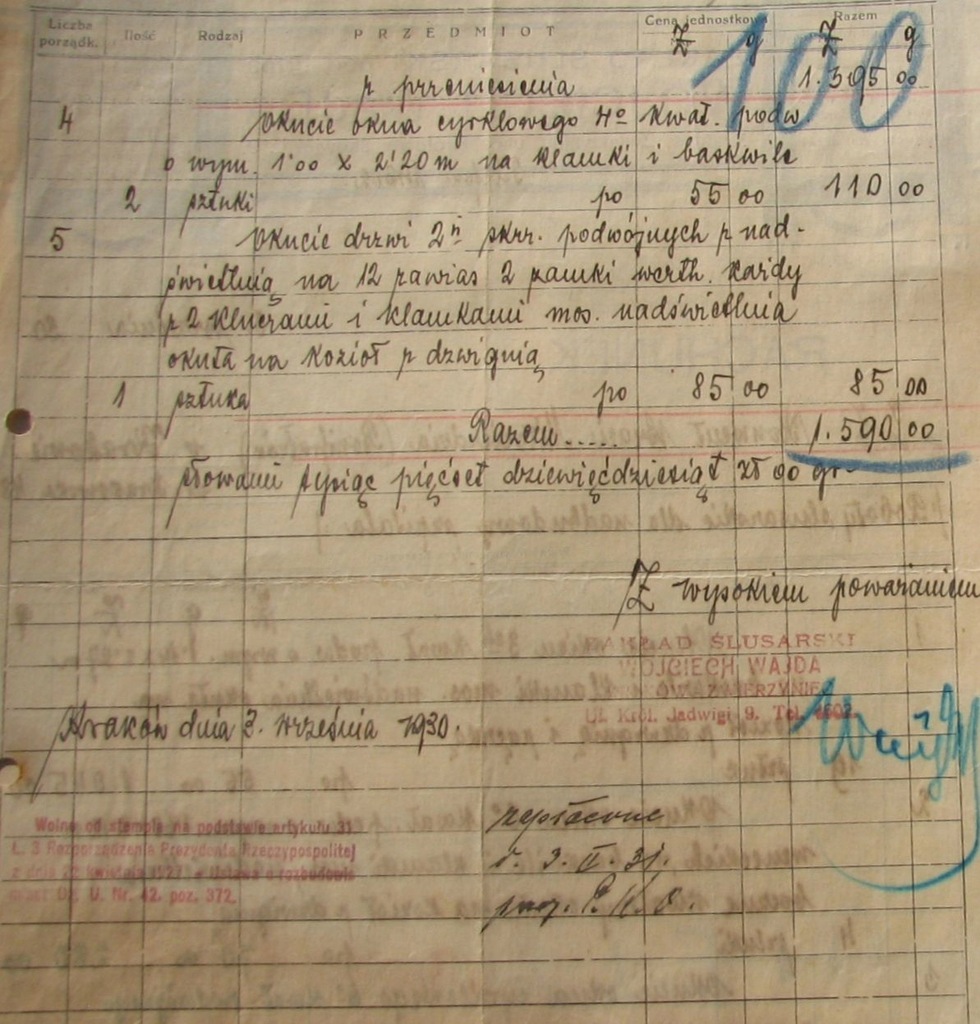 Liczba porządk. Ilość Rodzaj PRZEDMIOT Cena jednostkowa Razem
Zł g Zł g
100
z przeniesienia 1.395 00
4 Okucie okna cyrklowego 4o kwat. podw.
o wym. 1'00 x 2'20 m na klamki i baskwile
2 sztuki po 55 00 110 00
5 Okucie drzwi 2n skrz. podwójnych z nad-
świetlnią na 12 zawias 2 zamki werth. każdy
z 2 kluczami i klamkami mos. nadświetlnia
okuta na kozioł z dzwignią
1 sztuka po 85 00 85 00
Razem..... 1.590 00
słowami tysiąc pięćset dziewięćdziesiąt zł 00 gr
Z wysokiem poważaniem
ZAKŁAD ŚLUSARSKI
WOJCIECH WAJDA
ZWIERZYNIEC
Ul. Król. Jadwigi 9. Tel.
Kraków dnia 3. września 1930.
Wolne od stempla na podstawie artykułu 31
L. 3 Rozporządzenia Prezydenta Rzeczypospolitej
z dnia 22 kwietnia 1927 o rozbudowie
miast Dz. U. Nr. 42. poz. 372.
zapłacone
d. 3. II. 31.
przez P. K. O.